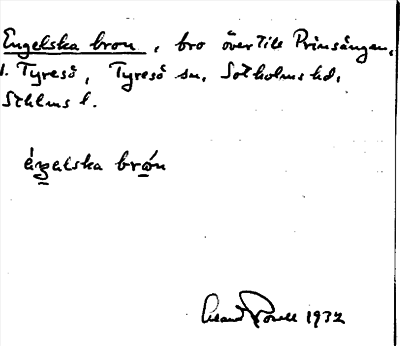 Engelska bron, bro över till Prinsängen,
l. Tyresö, Tyresö sn, Sotholms hd,
Sthlms l.
éngelska brón
1932